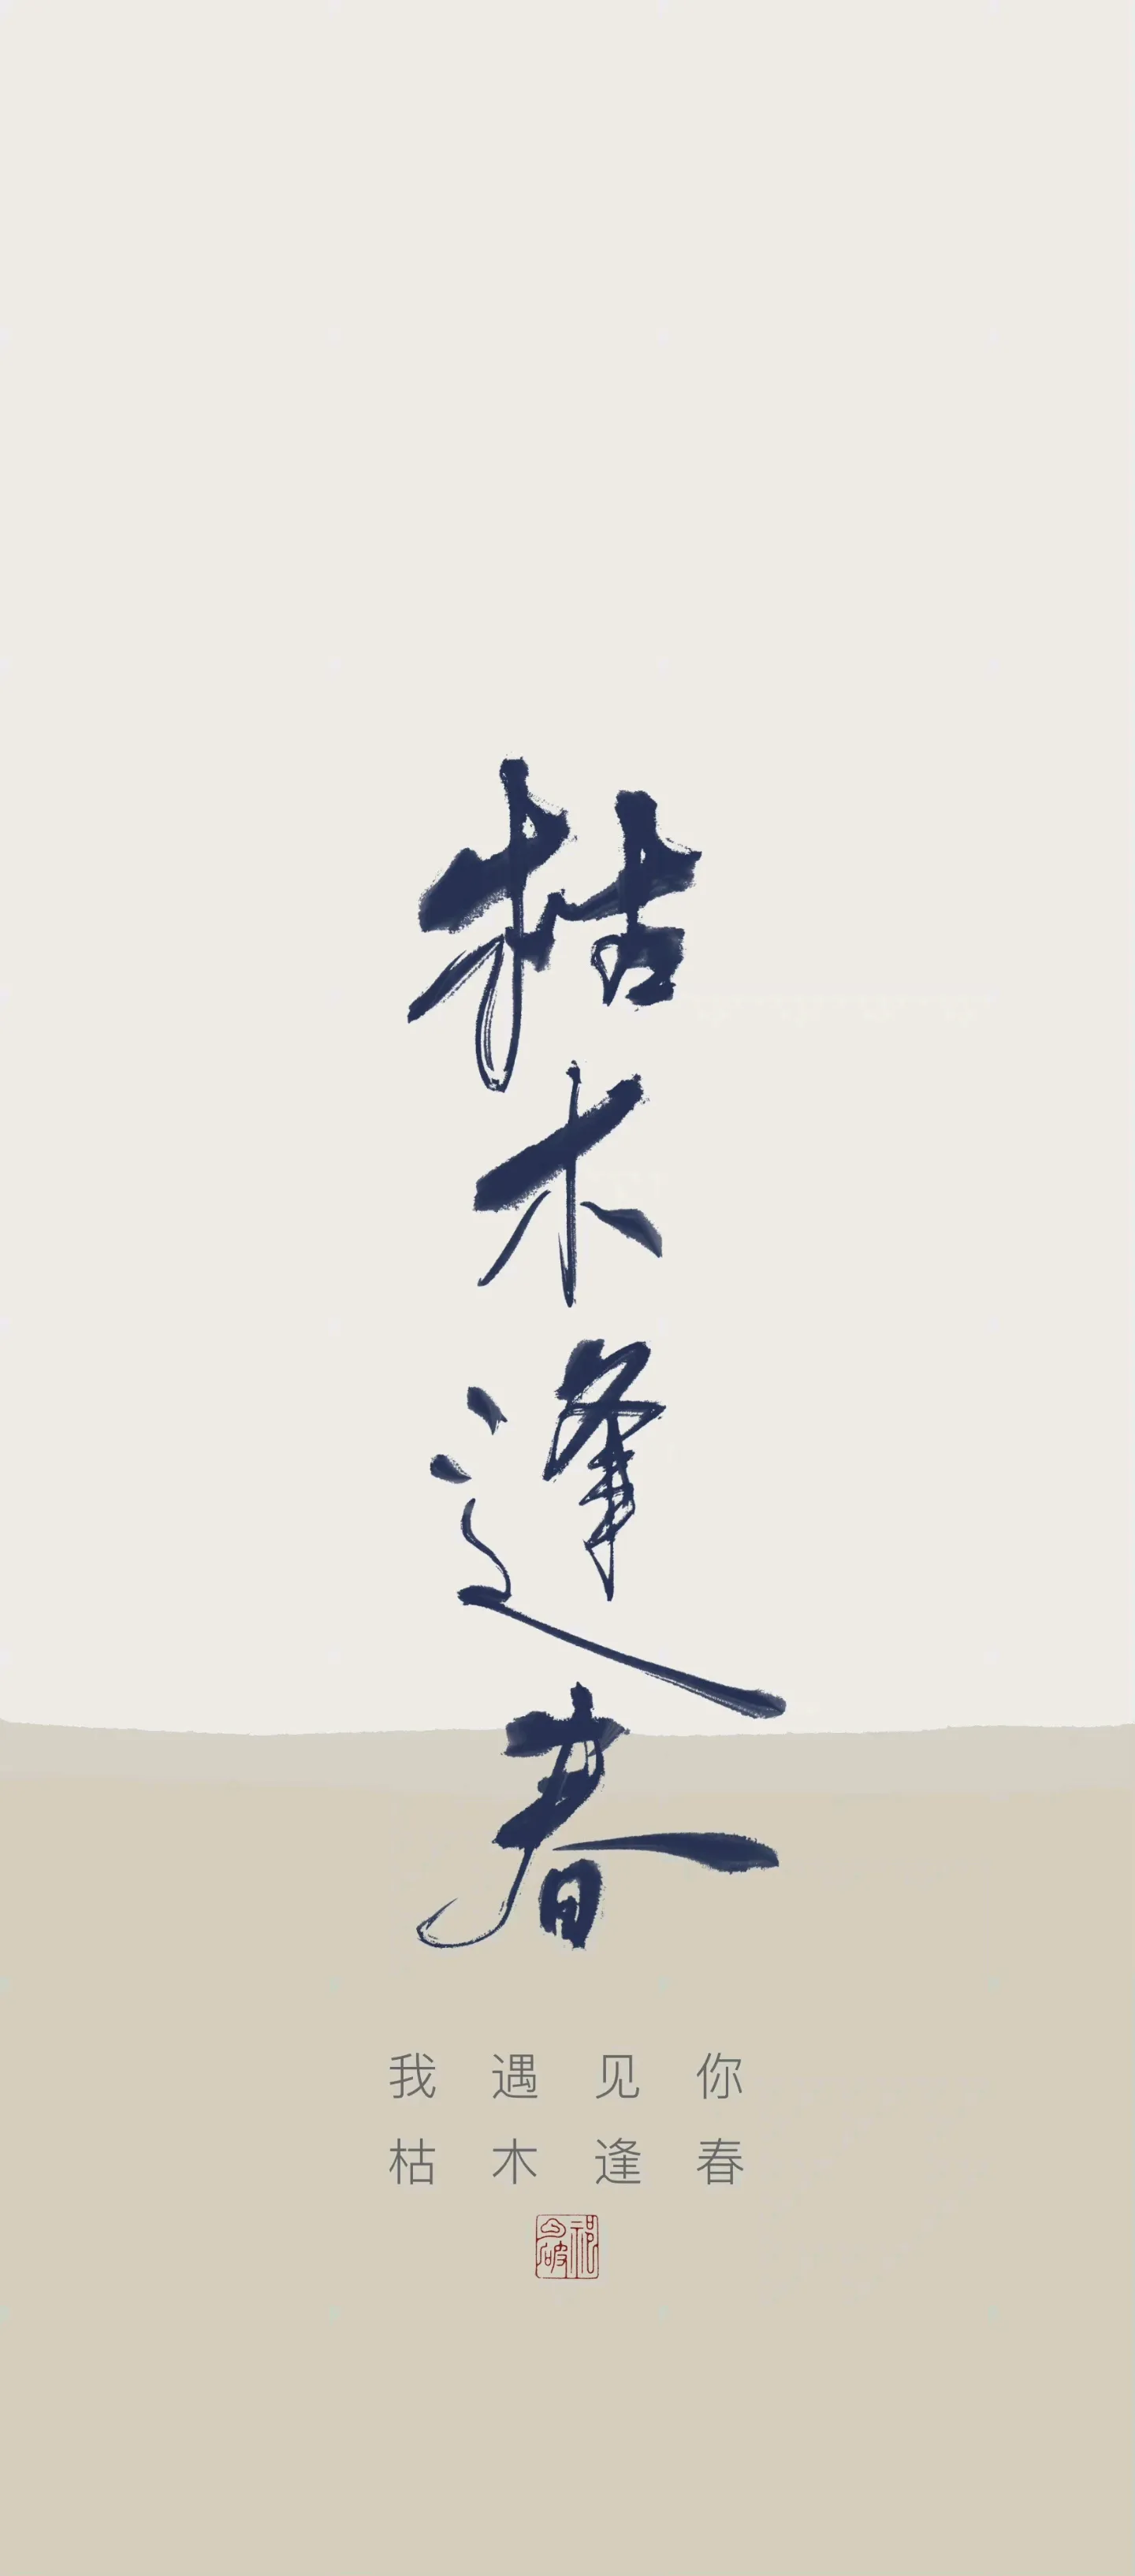 枯木逢春
我遇见你
枯木逢春